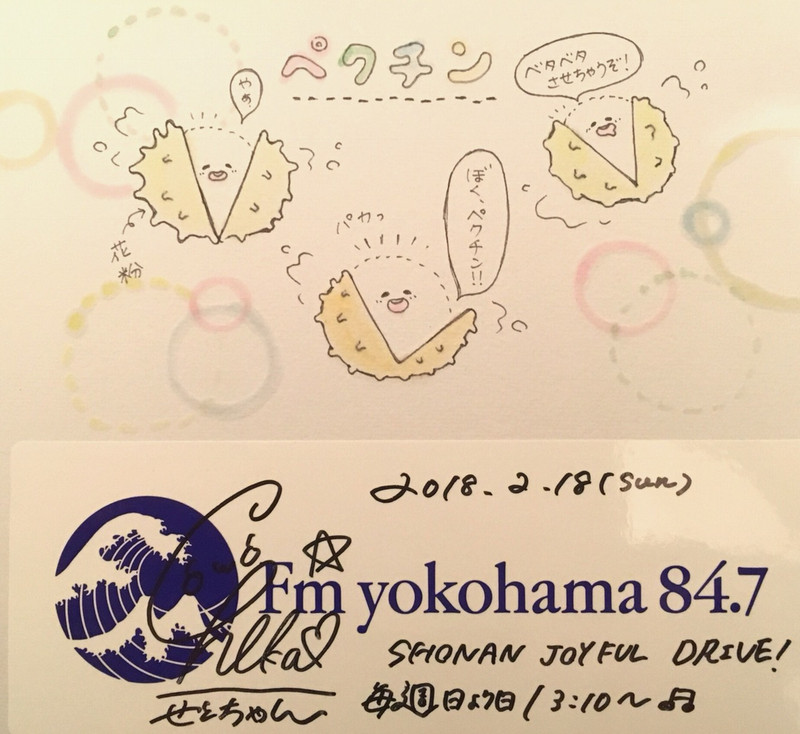 ペクチン
ベタベタ
させちゃうぞ!
やあ
ぼく、ペクチン!!
パカッ
花粉
2018.2.18(Sun)
Fm yokohama 84.7
SHONAN JOYFUL DRIVE!
せとちゃん
毎週日よう日 13:10〜♫